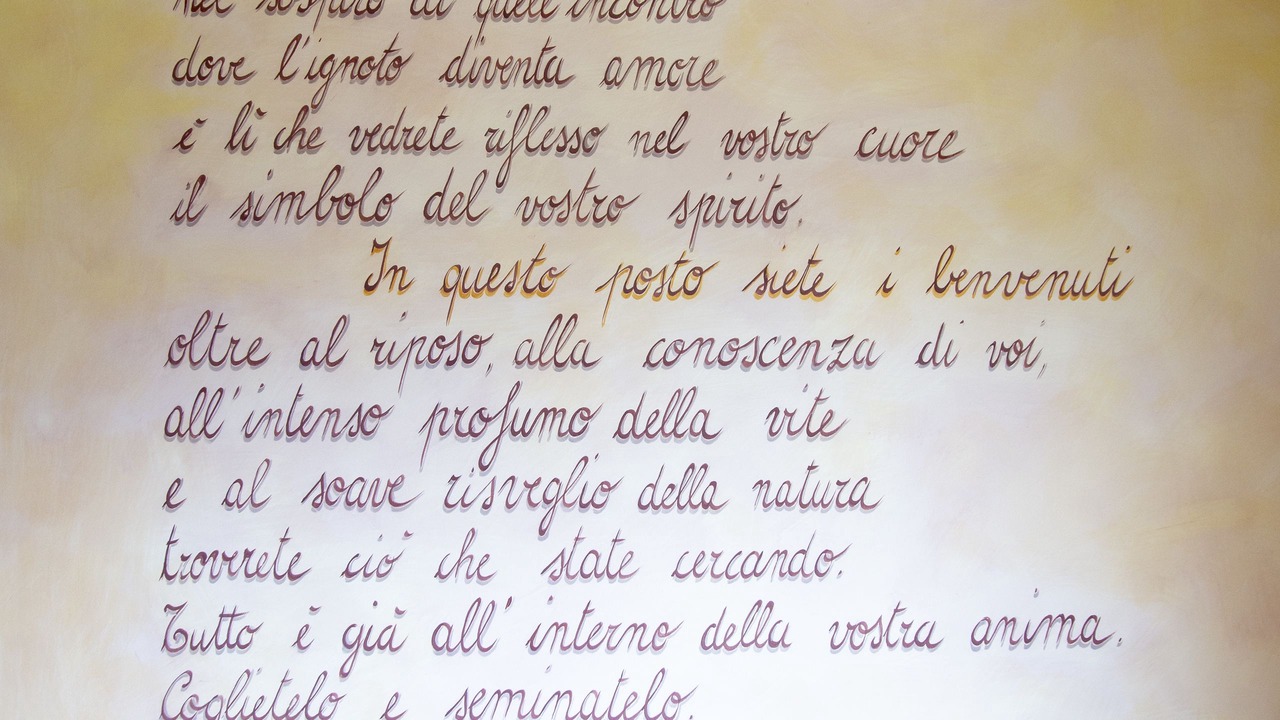 nel sospiro di quell'incontro
dove l'ignoto diventa amore
è lì che vedrete riflesso nel vostro cuore
il simbolo del vostro spirito.
In questo posto siete i benvenuti
oltre al riposo, alla conoscenza di voi,
all'intenso profumo della vite
e al soave risveglio della natura
troverete ciò che state cercando.
Tutto è già all'interno della vostra anima.
Coglietelo e seminatelo.